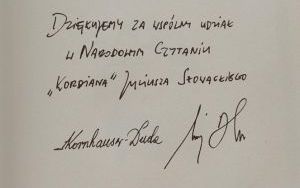 Dziękujemy za wspólny udział
w Narodowym Czytaniu
„Kordiana” Juliusza Słowackiego
AKornhauser-Duda